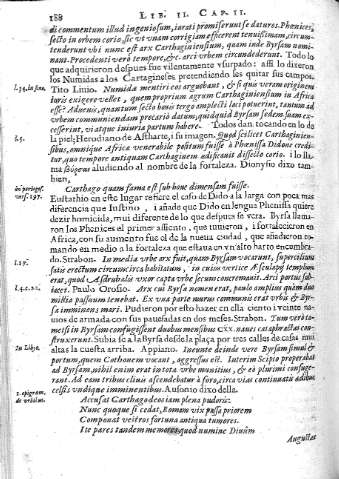 188 LIB. II. CAP. II.
di commentum illud ingeniosum, iurati promiserunt se daturos. Phenices,
secto in orbem corio sic vt vnam corrigiam efficerent tenuissimam, circun-
tenderunt vbi nunc est arx Carthaginiensium, quam inde Byrsam nomi-
nant. Procedenti vero tempore, &c. arci vrbem circundederunt. Todo lo
que adquirieron despues fue vilentamente vsurpado: assi lo dixeron
los Numidas a los Cartagineses pretendiendo les quitar sus campos.
Tito Linio. Numidæ mentiri eos arguebant, & si quis veram originem
iuris exigere vellet, quem proprium agrum Carthaginiensium in Africa
esse? Aduenis, quantum secto bouis tergo amplecti loci potuerint, tantum ad
vrbem communiendam precario datum, quidquid Byrsam sedem suam ex-
cesserint, vi atque iniuria partum habere. Todos dan tocando en lo de
la piel: Herodiano de Astharte, i su imagen. Quod scilicet Carthaginien-
sibus, omnique Africæ venerabile positum fuisse à Phœnissa Didone credi-
tur, quo tempore antiquam Carthaginem ædificauit dissecto corio. i lo lla-
ma aludiendo al nombre de la fortaleza. Dionysio dixo tam-
bien,
Carthago quam fama est sub boue dimensam fuisse.
Eustathio en este lugar refiere el caso de Dido a la larga con poca mas
diferencia que Iustino, i añade que Dido en lengua Phenissa quiere
dezir homicida, mui diferente de lo que despues se verà. Byrsa llama-
ron los Phenices el primer assiento, que tuuieron, i fortalecieron en
Africa, con su aumento fue el de la nueua ciudad, que añadieron to-
mando en medio a la fortaleza que estaua en vn alto harto encumbra-
do. Strabon. In media vrbe arx fuit, quam Byrsam vocatunt, supercilium
satis erectum circuncirca habitatum, in cuius vertice Æsculapij templum
erat, quod Asdrubalis vxor capta vrbe secum concremauit. Arci portus sub-
iacet. Paulo Orosio. Arx cui Byrsæ nomen erat, paulo amplius quàm duo
millia passuum tenebat. Ex vna parte murus communis erat vrbis & Byr-
sæ imminens mari. Pudieron por esto hazer en ella ciento i veinte na-
uios de armada con sus pauesadas en dos meses. Strabon. Tum verò ta-
metsi in Byrsam confugissent duobus mensibus cxx. naues cataphractas con-
struxerunt. Subia se a la Byrsa desde la plaça por tres calles de casas mui
altas la cuesta arriba. Appiano. Ineunte deinde vere Byrsam simul &
portum, quem Cothonem vocant, aggressus est. Interim Scipio properabat
ad Byrsam, nihil enim erat in tota vrbe munitius, & eò plurimi confuge-
rant. Ad eam tribus cliuis ascendebatur à foro, circa vias continuatis ædibus
celsis vndique imminentibus. Ausonio dixo della.
Accusat Carthago deos iam plena pudoris:
Nunc quoque si cedat, Romam vix passa priorem
Componat vestros fortuna antiqua tumores.
Ite pares tandem memores quod numine Diuûm
Augustas
L. 34. in fine.
L. 5.
De perieges. vers. 197.
L. 17.
L. 4. c. 22.
In Libyc.